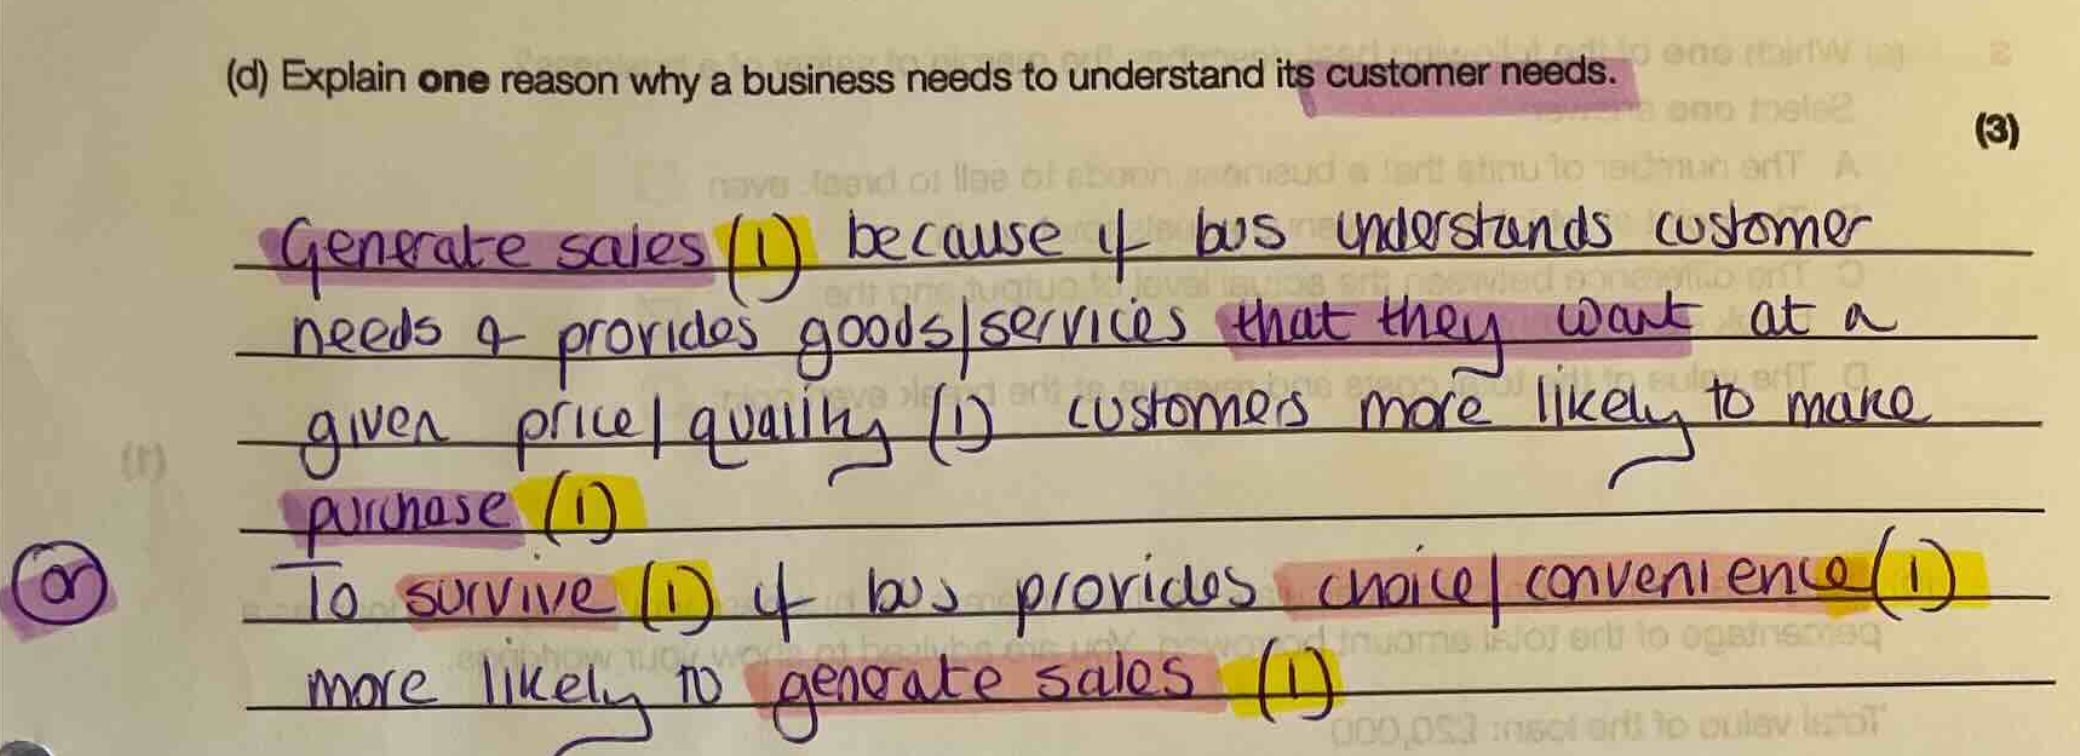 (d) Explain one reason why a business needs to understand its customer needs.
(3)
Generate sales (1) because if bus understands customer
needs & provides goods/services that they want at a
given price/quality (1) customers more likely to make
purchase (1)
or
To survive (1) if bus provides choice/convenience (1)
more likely to generate sales (1)